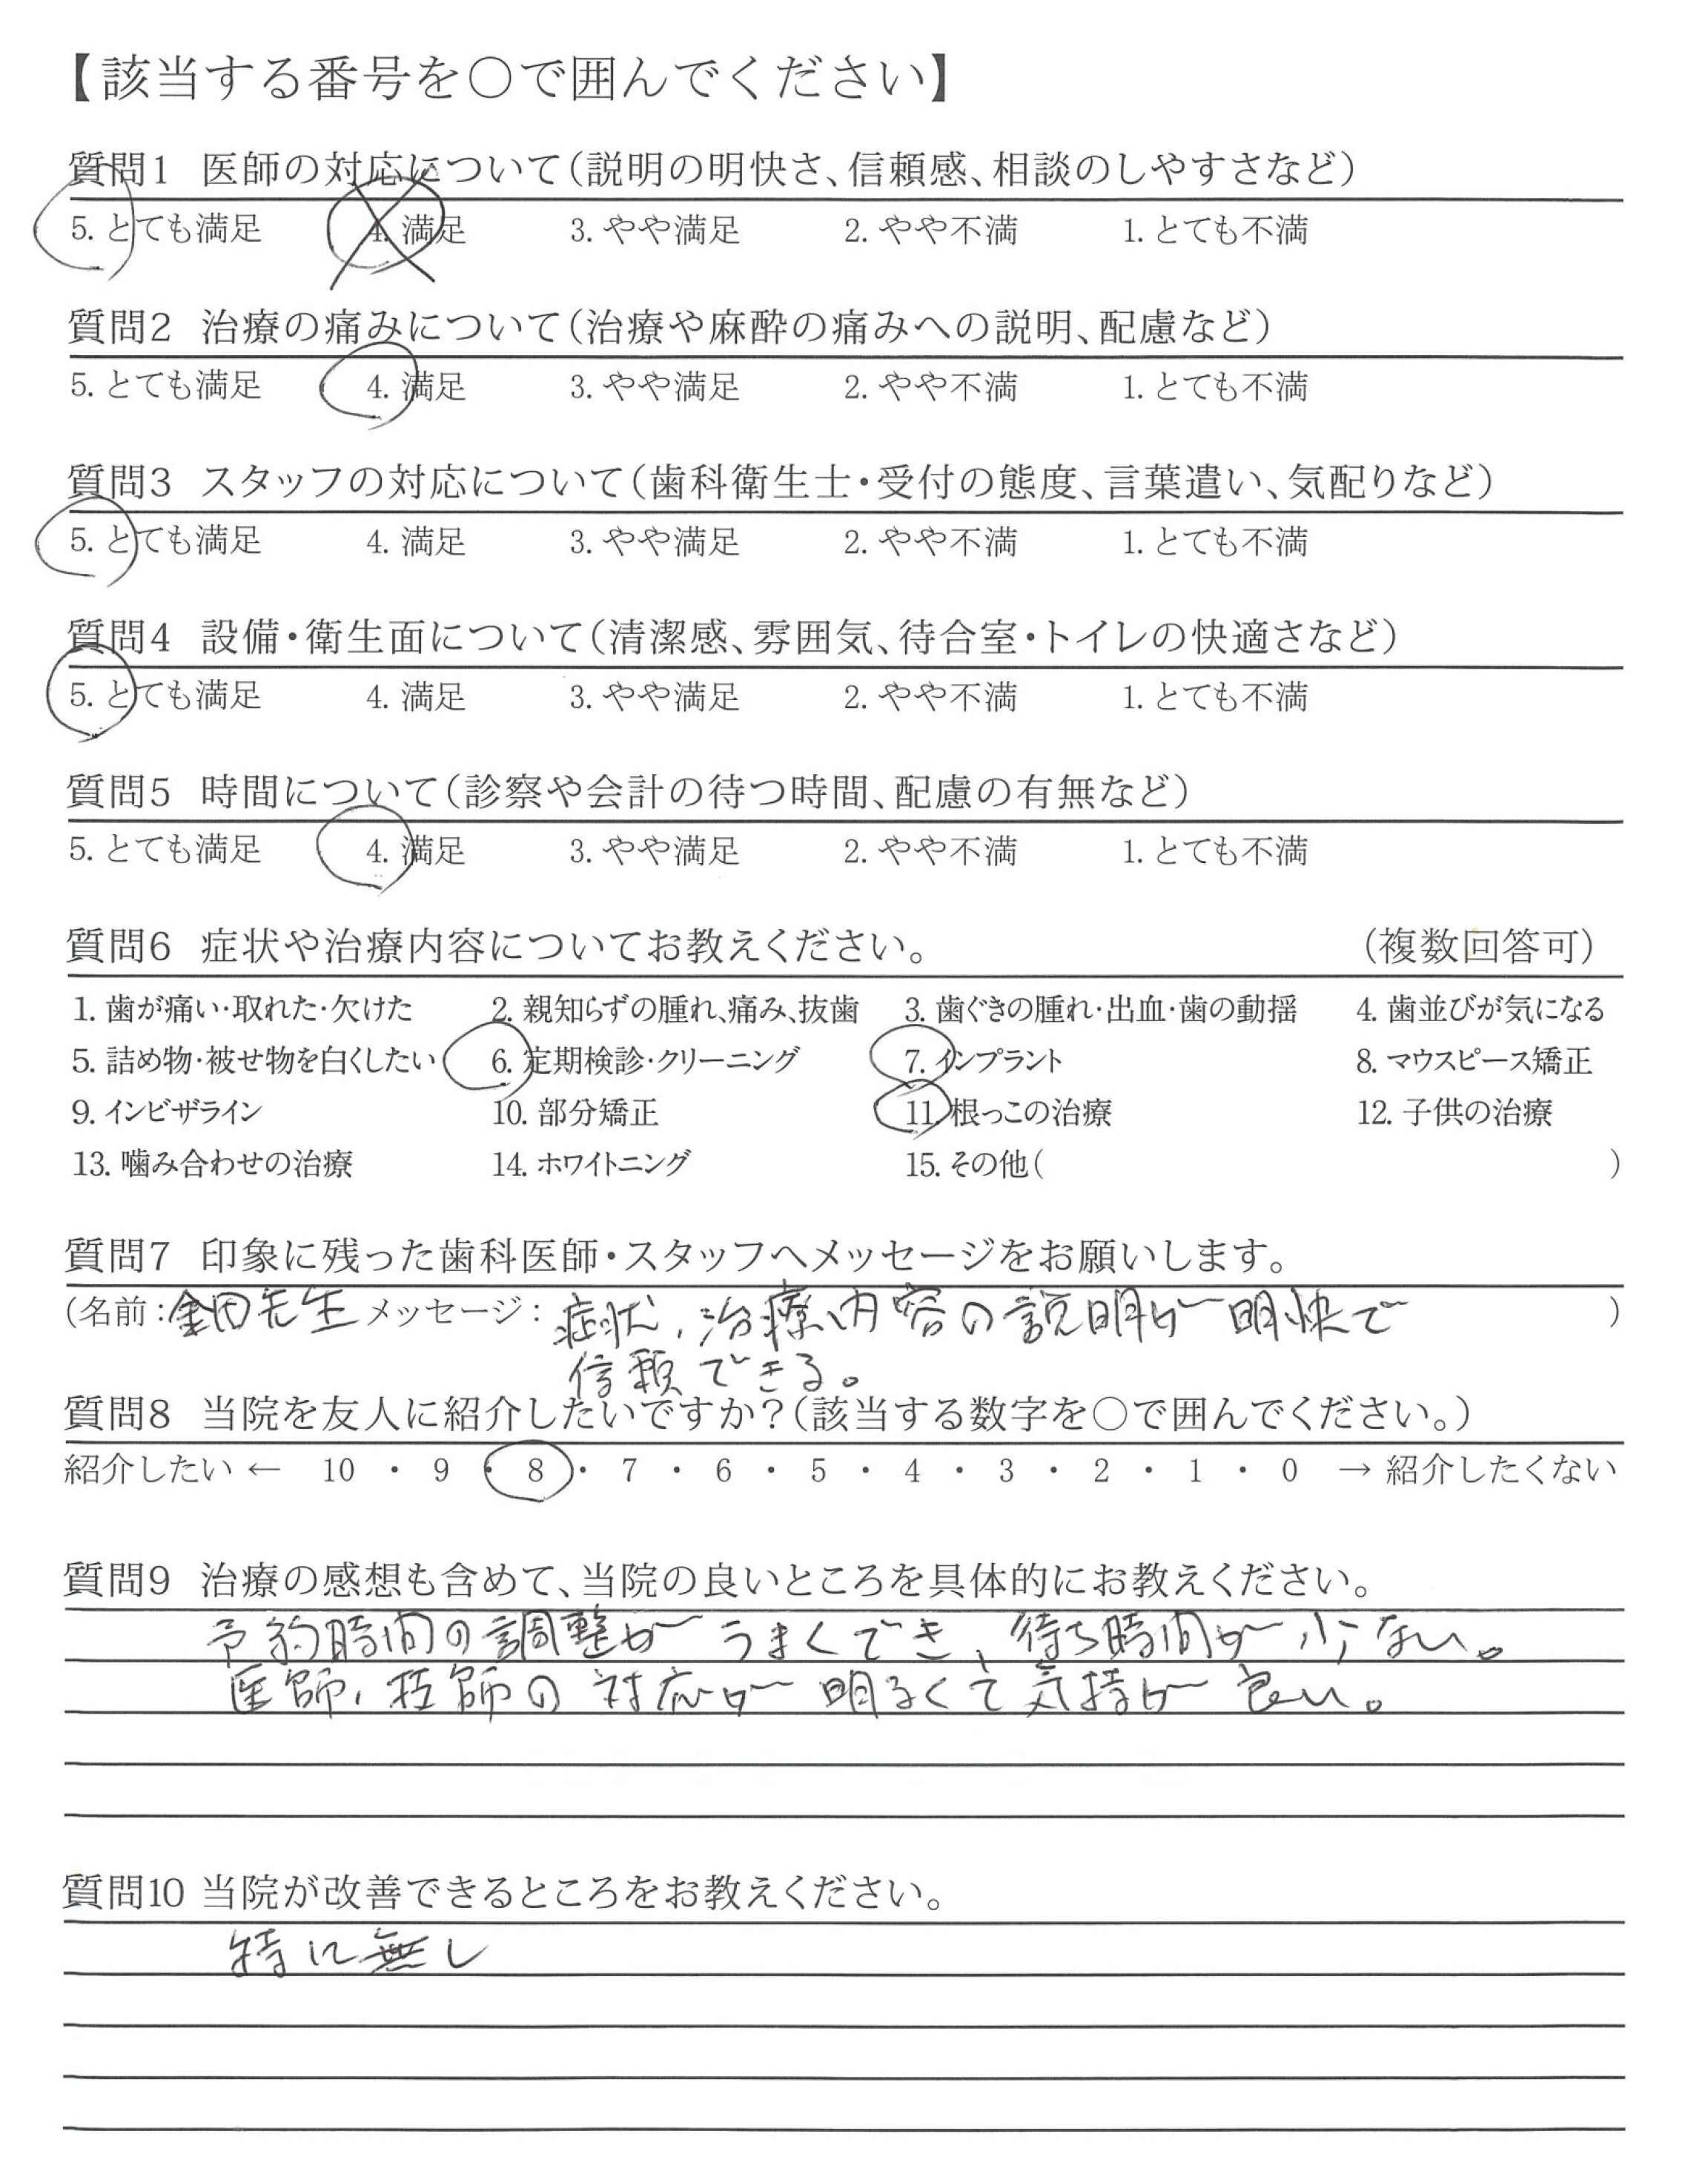 【該当する番号を○で囲んでください】
質問1 医師の対応について(説明の明快さ、信頼感、相談のしやすさなど)
5. とても満足 4. 満足 3. やや満足 2. やや不満 1. とても不満
質問2 治療の痛みについて(治療や麻酔の痛みへの説明、配慮など)
5. とても満足 4. 満足 3. やや満足 2. やや不満 1. とても不満
質問3 スタッフの対応について(歯科衛生士・受付の態度、言葉遣い、気配りなど)
5. とても満足 4. 満足 3. やや満足 2. やや不満 1. とても不満
質問4 設備・衛生面について(清潔感、雰囲気、待合室・トイレの快適さなど)
5. とても満足 4. 満足 3. やや満足 2. やや不満 1. とても不満
質問5 時間について(診察や会計の待つ時間、配慮の有無など)
5. とても満足 4. 満足 3. やや満足 2. やや不満 1. とても不満
質問6 症状や治療内容についてお教えください。 (複数回答可)
1. 歯が痛い・取れた・欠けた 2. 親知らずの腫れ、痛み、抜歯 3. 歯ぐきの腫れ・出血・歯の動揺 4. 歯並びが気になる
5. 詰め物・被せ物を白くしたい 6. 定期検診・クリーニング 7. インプラント 8. マウスピース矯正
9. インビザライン 10. 部分矯正 11. 根っこの治療 12. 子供の治療
13. 噛み合わせの治療 14. ホワイトニング 15. その他( )
質問7 印象に残った歯科医師・スタッフへメッセージをお願いします。
(名前:金田先生 メッセージ: 症状、治療内容の説明が明快で )
信頼できる。
質問8 当院を友人に紹介したいですか?(該当する数字を○で囲んでください。)
紹介したい ← 10 ・ 9 ・ 8 ・ 7 ・ 6 ・ 5 ・ 4 ・ 3 ・ 2 ・ 1 ・ 0 → 紹介したくない
質問9 治療の感想も含めて、当院の良いところを具体的にお教えください。
予約時間の調整がうまくでき、待ち時間が少ない。
医師、技師の対応が明るくて気持が良い。
質問10 当院が改善できるところをお教えください。
特に無し